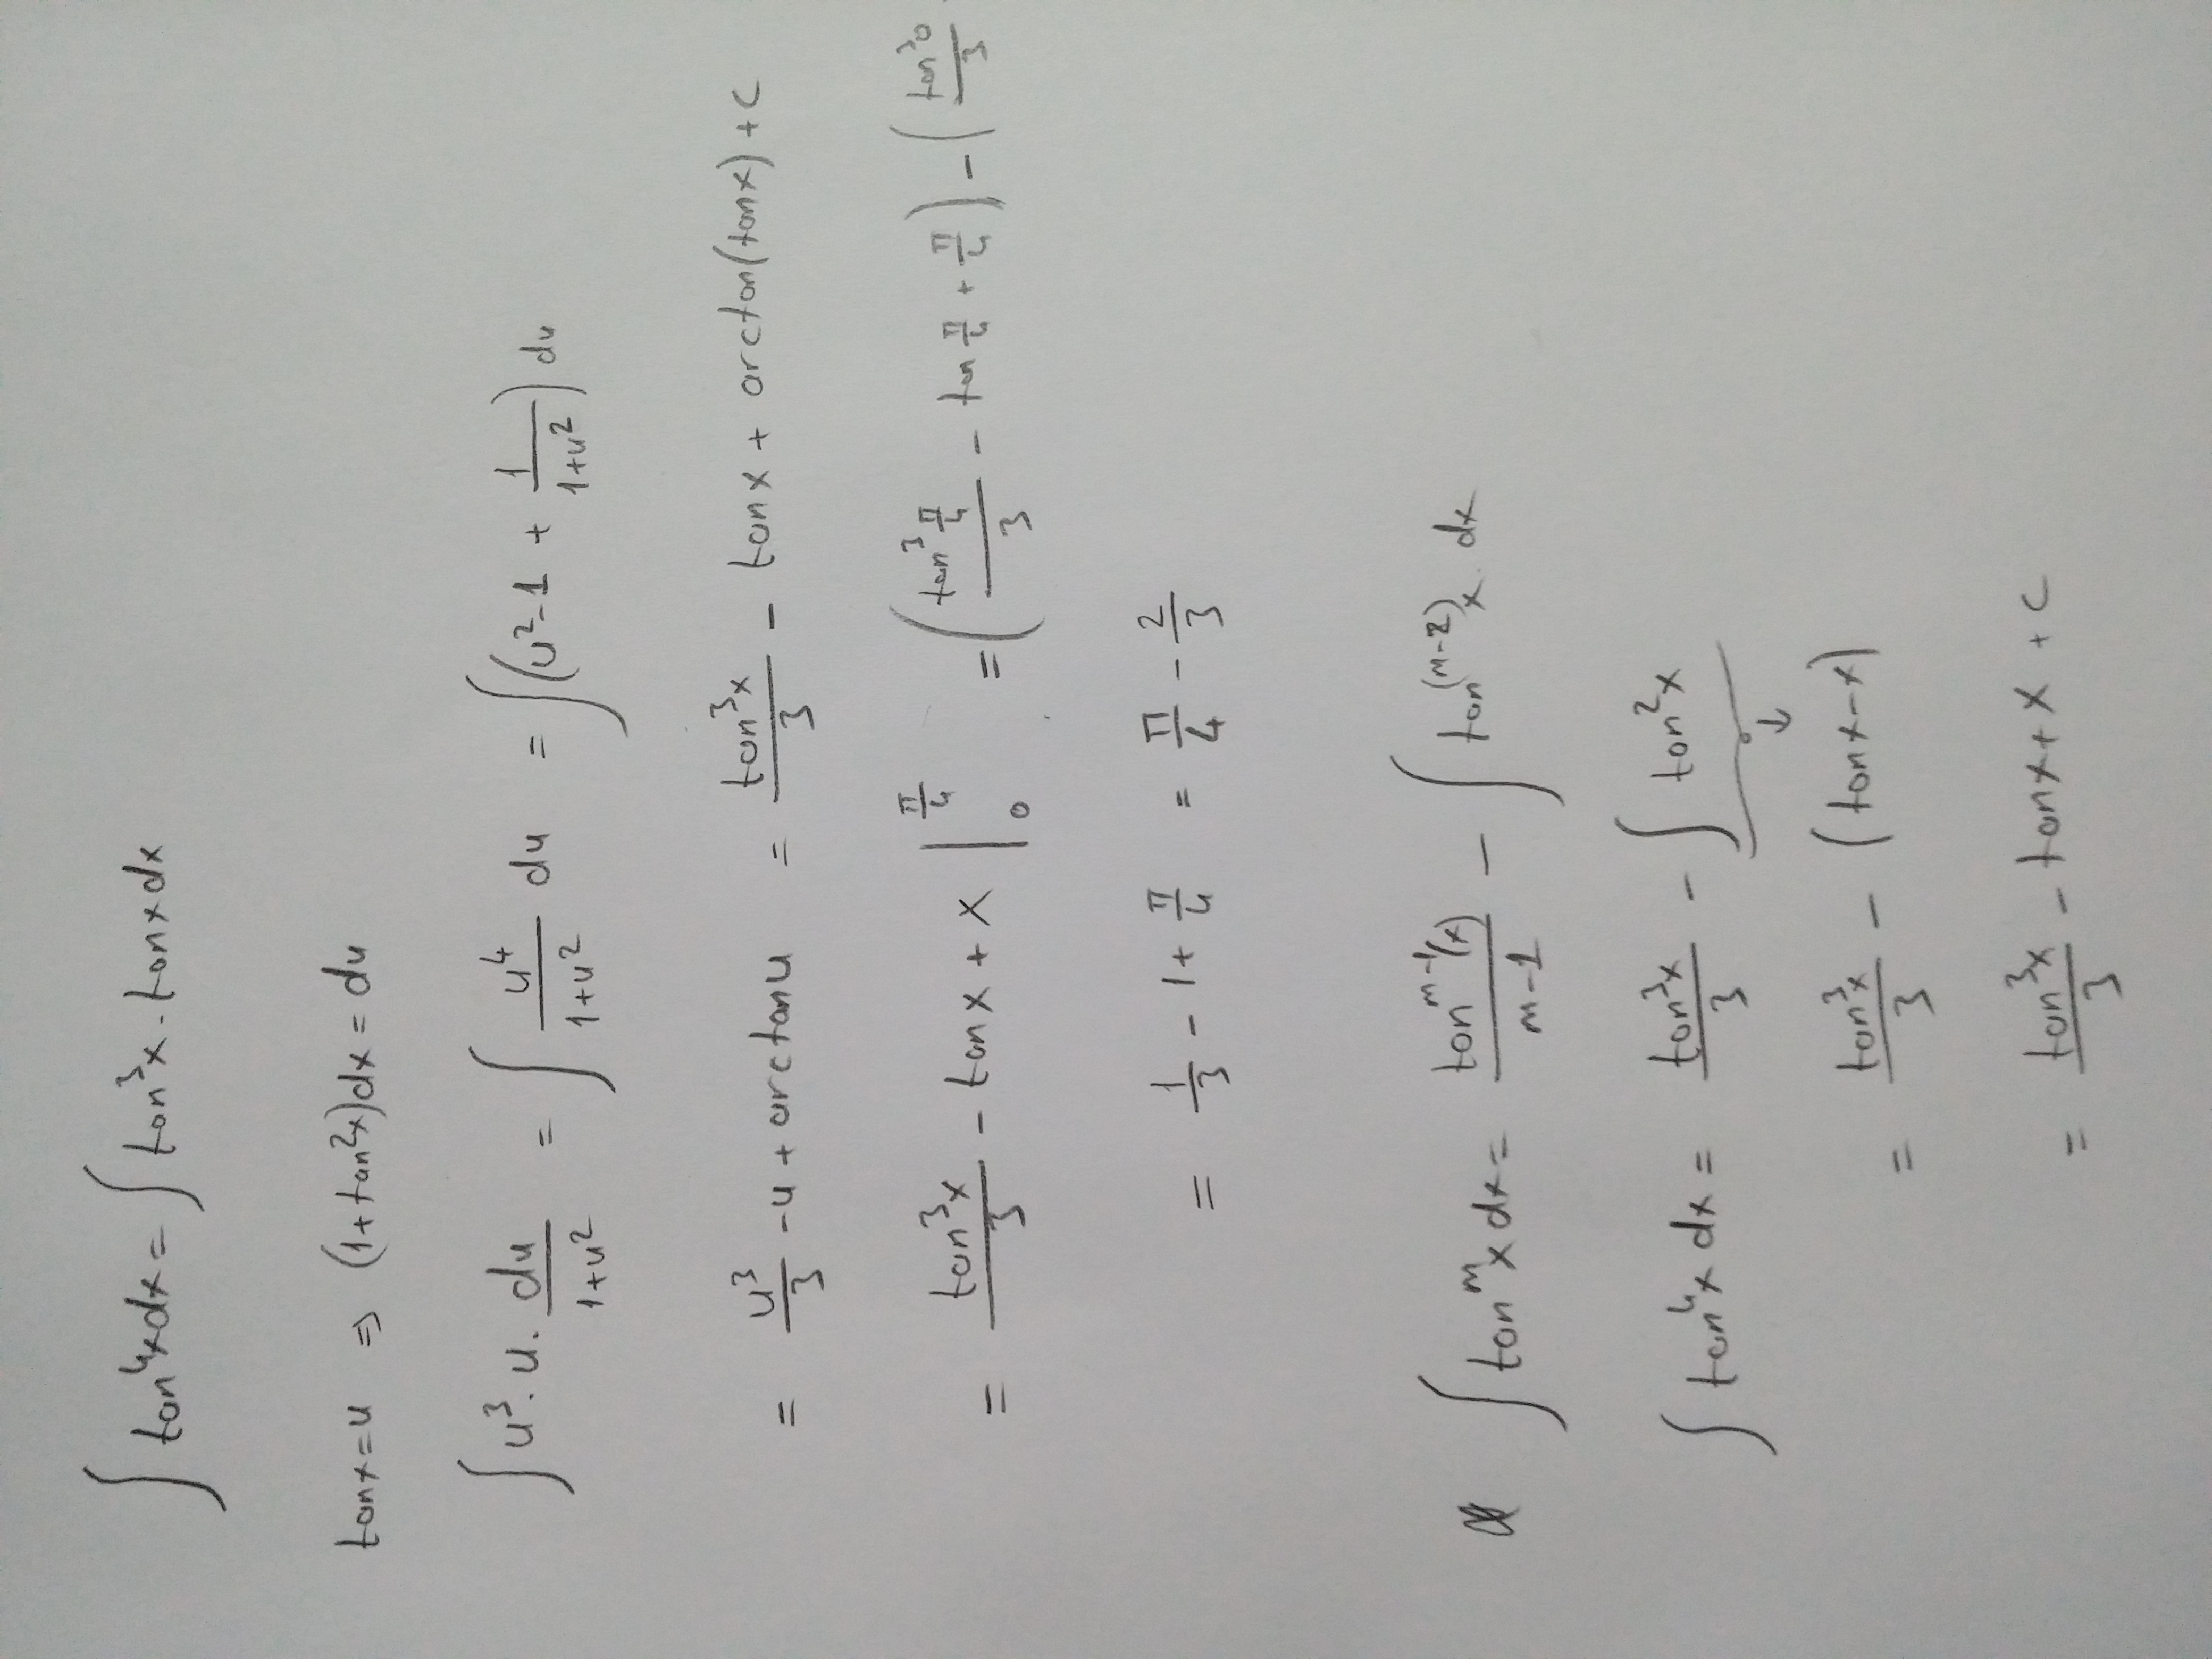 ∫ tan⁴x dx = ∫ tan³x · tanx dx
tanx = u ⇒ (1+tan²x)dx = du
∫ u³ · u · du/(1+u²) = ∫ u⁴/(1+u²) du = ∫ (u²-1 + 1/(1+u²)) du
= u³/3 - u + arctanu = tan³x/3 - tanx + arctan(tanx) + c
= tan³x/3 - tanx + x |₀^(π/4) = (tan³ π/4 / 3 - tan π/4 + π/4) - (tan³0/3
= 1/3 - 1 + π/4 = π/4 - 2/3
∫ tanᵐx dx = tanᵐ⁻¹(x)/(m-1) - ∫ tan⁽ᵐ⁻²⁾x. dx
∫ tan⁴x dx = tan³x/3 - ∫ tan²x
↓
= tan³x/3 - (tanx-x)
= tan³x/3 - tanx + x + c